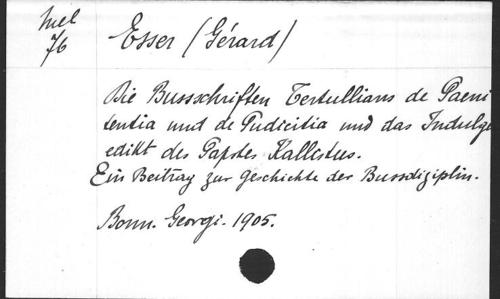 Mel
76
Esser (Gérard)
Die Bussschriften Tertullians de Paeni
tentia und de Pudicitia und das Indulge
edikt des Papstes Kallistus.
Ein Beitrag zur Geschichte der Bussdiziplin.
Bonn. Georgi. 1905.